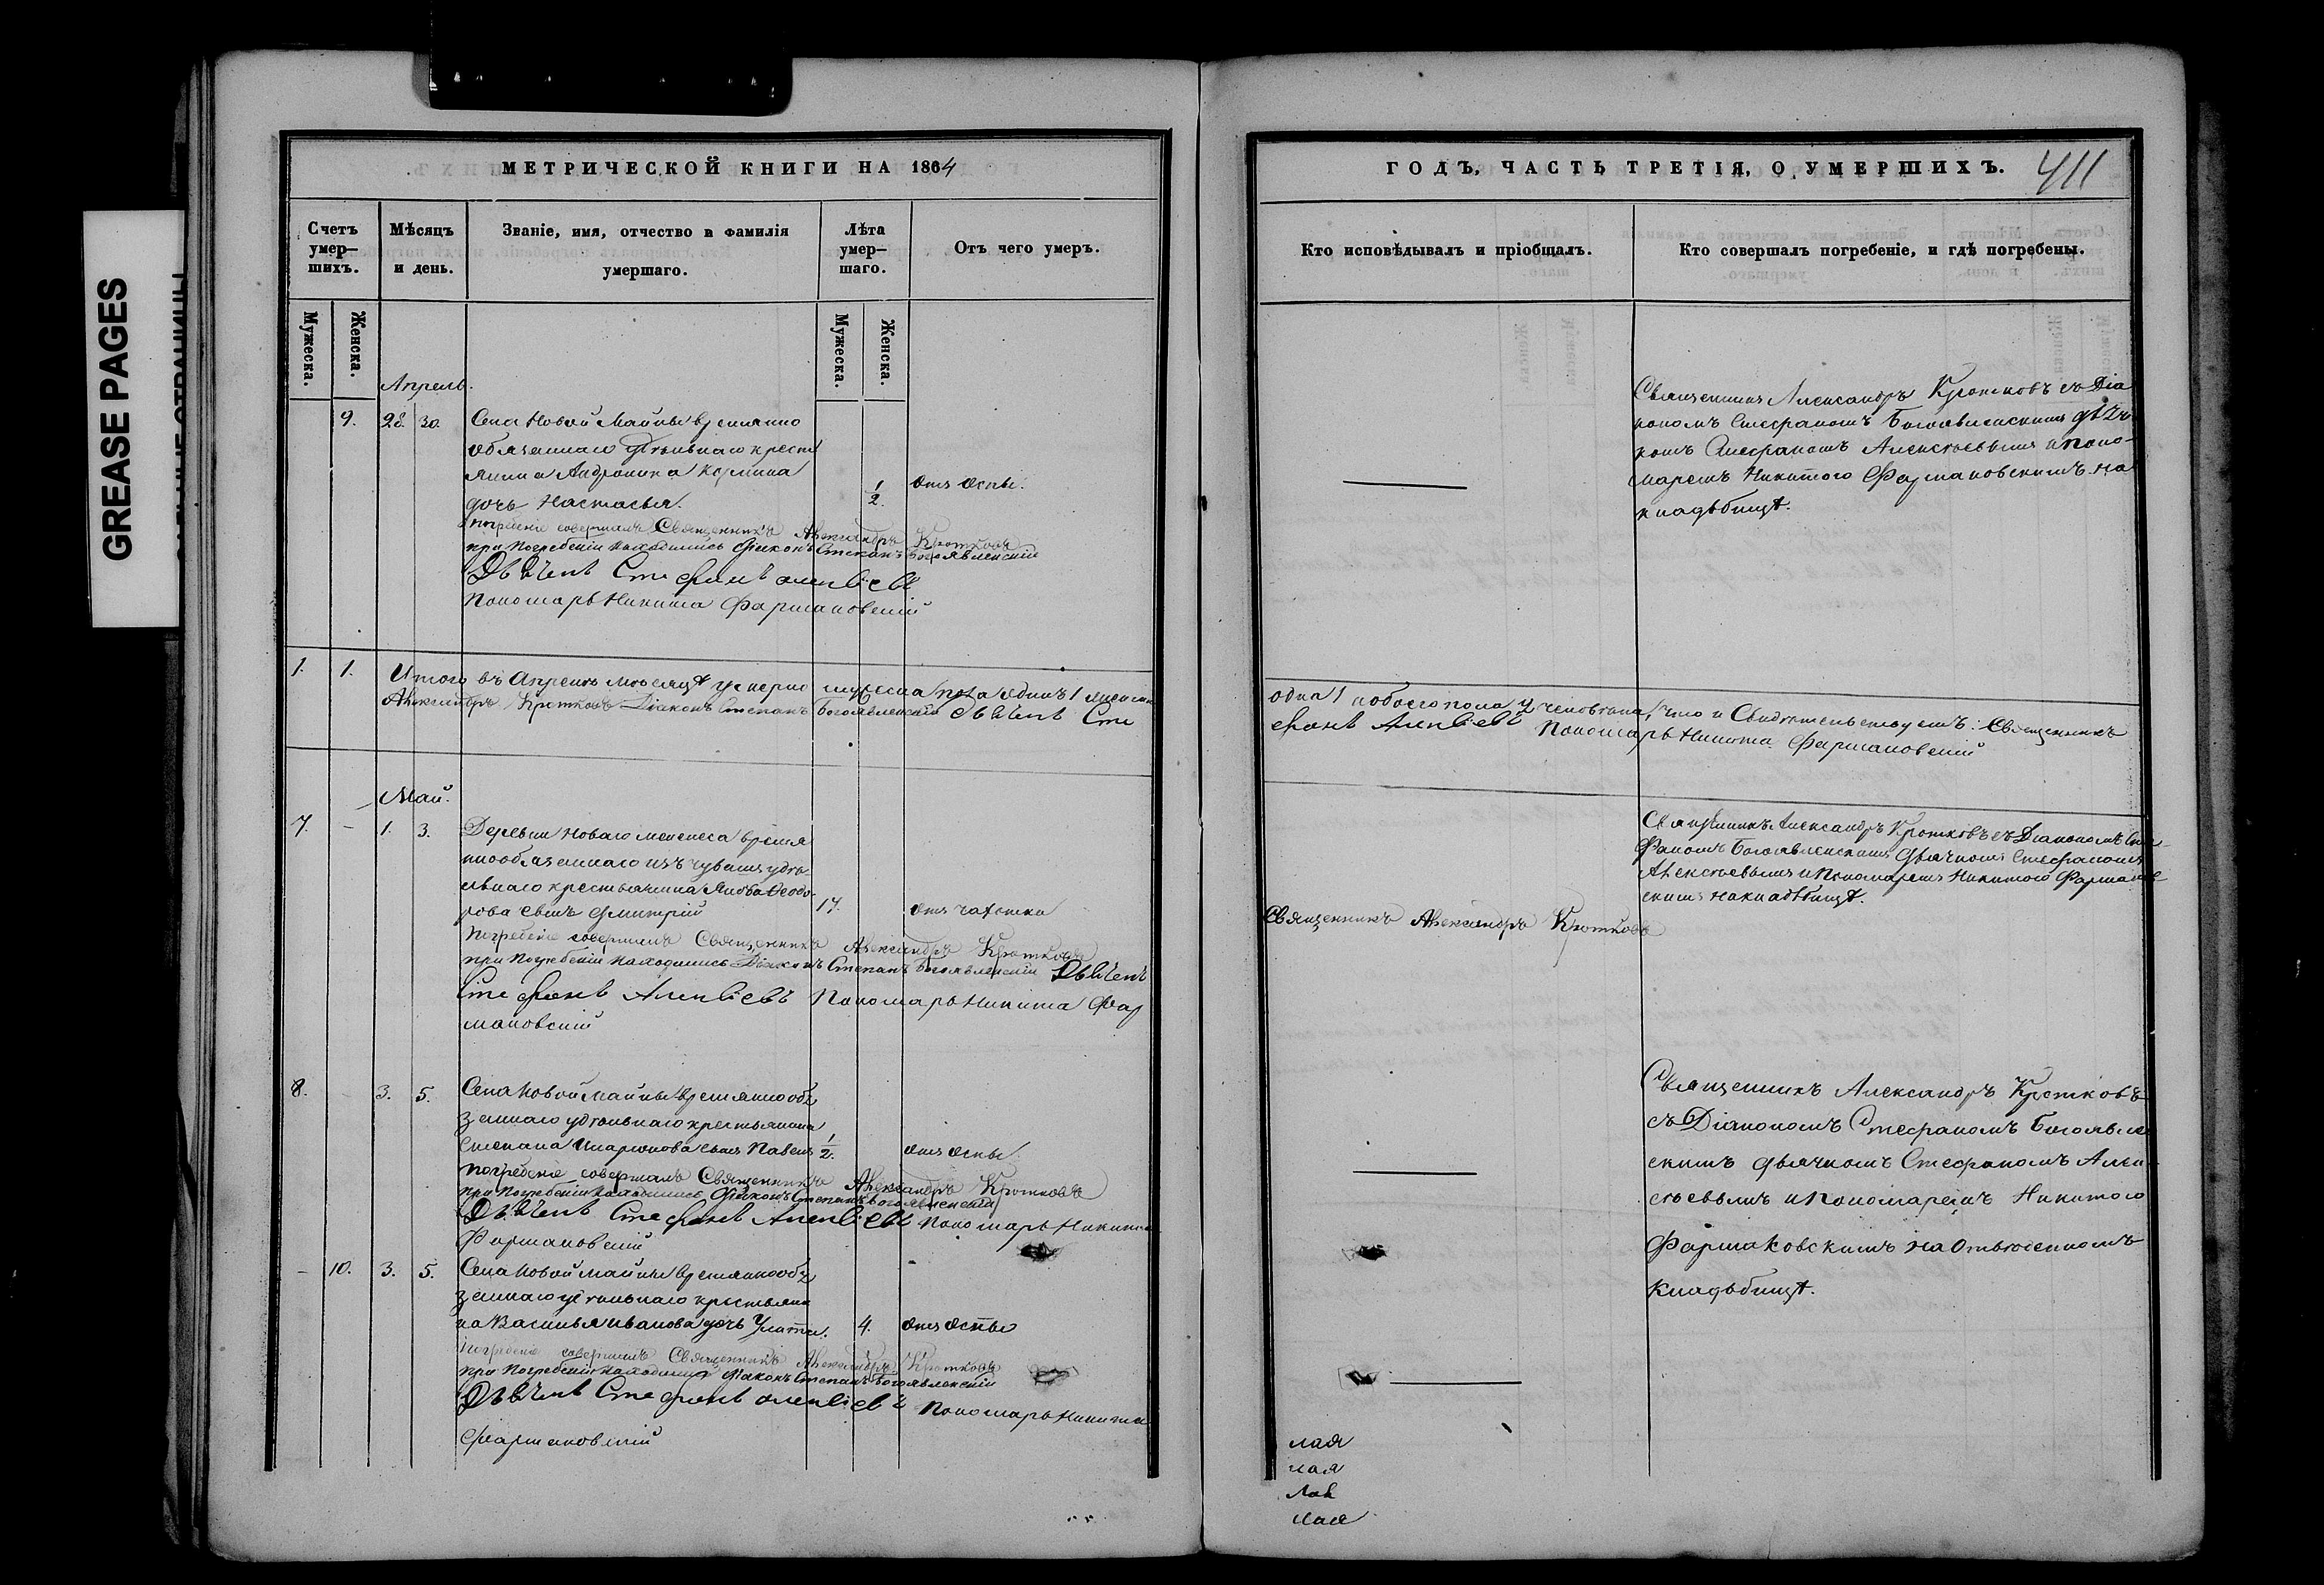 GREASE PAGES
МЕТРИЧЕСКОЙ КНИГИ НА 1864
Счетъ умер-шихъ.
Мѣсяцъ и день.
Званіе, имя, отчество и фамилія умершаго.
Лѣта умер-шаго.
Отъ чего умеръ.
Мужеска.
Женска.
Мужеска.
Женска.
Апрель.
9. 28. 30. Села Новой Майны временно
обязаннаго удѣльнаго кресть
янина Андроника
дочь Настасья. 1/2. отъ оспы.
Погребеніе совершалъ Священникъ Александръ Кротковъ
при погребеніи находились Діаконъ Степанъ Богоявленскій
Дьячекъ Стефанъ
Пономарь Никита Фармаковскій
1. 1. Итого въ Апрелѣ месяцѣ умерло мужеска пола одинъ 1 женска
Александръ Кротковъ Діаконъ Степанъ Богоявленскій Дьячекъ Сте
Май.
7. - 1. 3. Деревни Новаго времен
нообязаннаго изъ чувашъ удѣ
льнаго крестьянина Якова Ѳеодо-
рова сынъ Дмитрій 17. отъ чахотки
Погребеніе совершалъ Священникъ Александръ Кротковъ
при погребеніи находились Діаконъ Степанъ Богоявленскій Дьячекъ
Стефанъ Пономарь Никита Фар
маковскій
8. 3. 5. Села Новой Майны временнообя
заннаго удѣльнаго крестьянина
Степана Иларионова сынъ Павелъ 1/2. отъ оспы
Погребеніе совершалъ Священникъ Александръ Кротковъ
при погребеніи находились Діаконъ Степанъ Богоявленскій
Дьячекъ Стефанъ Пономарь Никита
Фармаковскій
- 10. 3. 5. Села Новой Майны временнообя
заннаго удѣльнаго крестьяни
на Василья Иванова дочь 4. отъ оспы
Погребеніе совершалъ Священникъ Александръ Кротковъ
при погребеніи находились Діаконъ Степанъ Богоявленскій
Дьячекъ Стефанъ Пономарь Никита
Фармаковскій
ГОДЪ, ЧАСТЬ ТРЕТІЯ, О УМЕРШИХЪ. 411
Кто исповѣдывалъ и пріобщалъ.
Кто совершалъ погребеніе, и гдѣ погребены.
Священникъ Александръ Кротковъ съ Діа
кономъ Стефаномъ Богоявленскимъ дьяч
комъ Стефаномъ Алексѣевымъ и поно-
маремъ Никитою Фармаковскимъ на
кладбищѣ.
одна 1 обоего пола 2 человѣка, что и свидѣтельствуемъ: Священникъ
фанъ Пономарь Никита Фармаковскій
Священникъ Александръ Кротковъ съ Діакономъ Сте
фаномъ Богоявленскимъ дьячкомъ Стефаномъ
Алексѣевымъ и Пономаремъ Никитою Фармаков
скимъ на кладбищѣ.
Священникъ Александръ Кротковъ
Священникъ Александръ Кротковъ
съ Діакономъ Стефаномъ Богоявлен
скимъ дьячкомъ Стефаномъ Алек
сѣевымъ и Пономаремъ Никитою
Фармаковскимъ на отведенномъ
кладбищѣ.